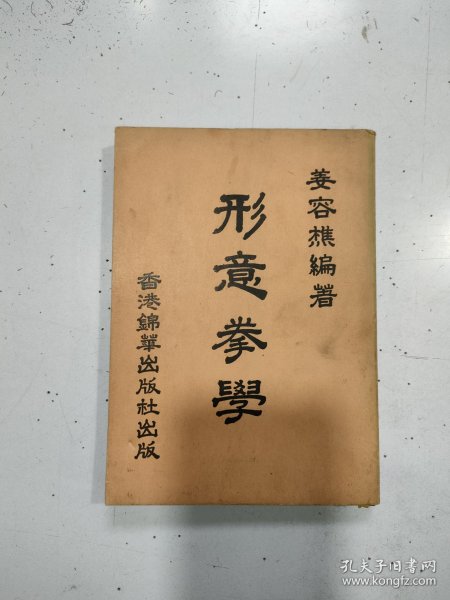 姜容樵編著
形意拳學
香港錦華出版社出版
孔夫子旧书网
www.kongfz.com